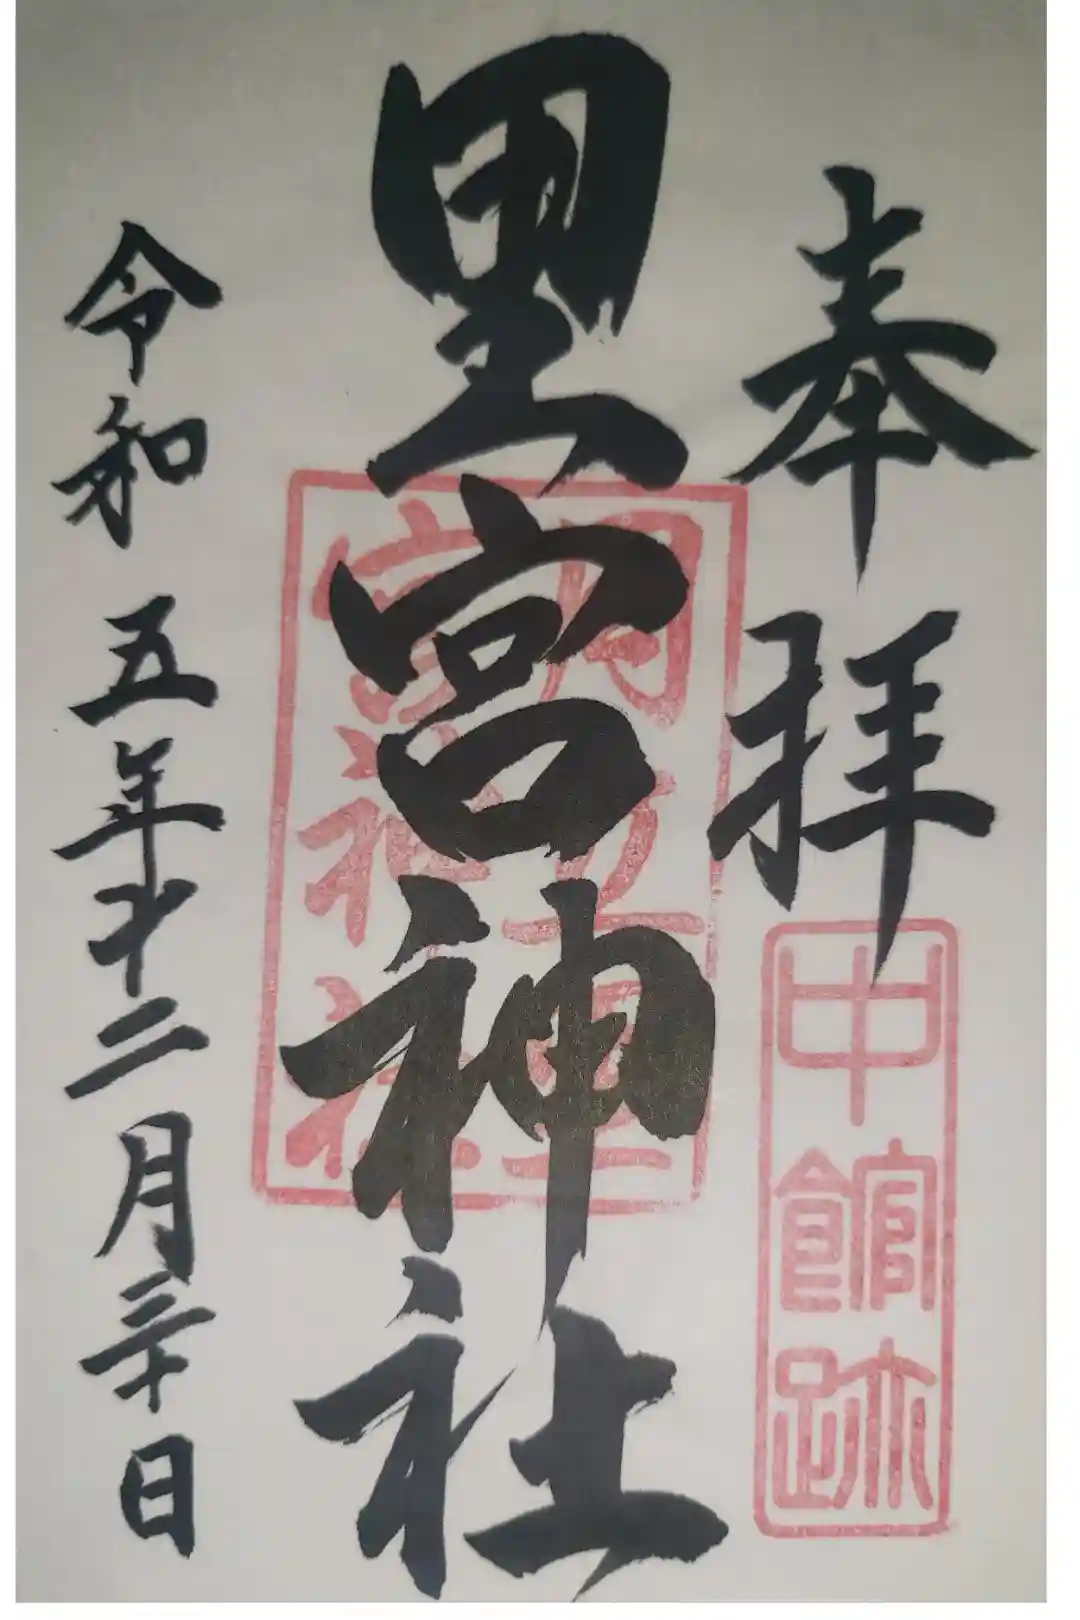 奉拝
中館跡
里宮神社
宮神社
令和五年十二月三十日